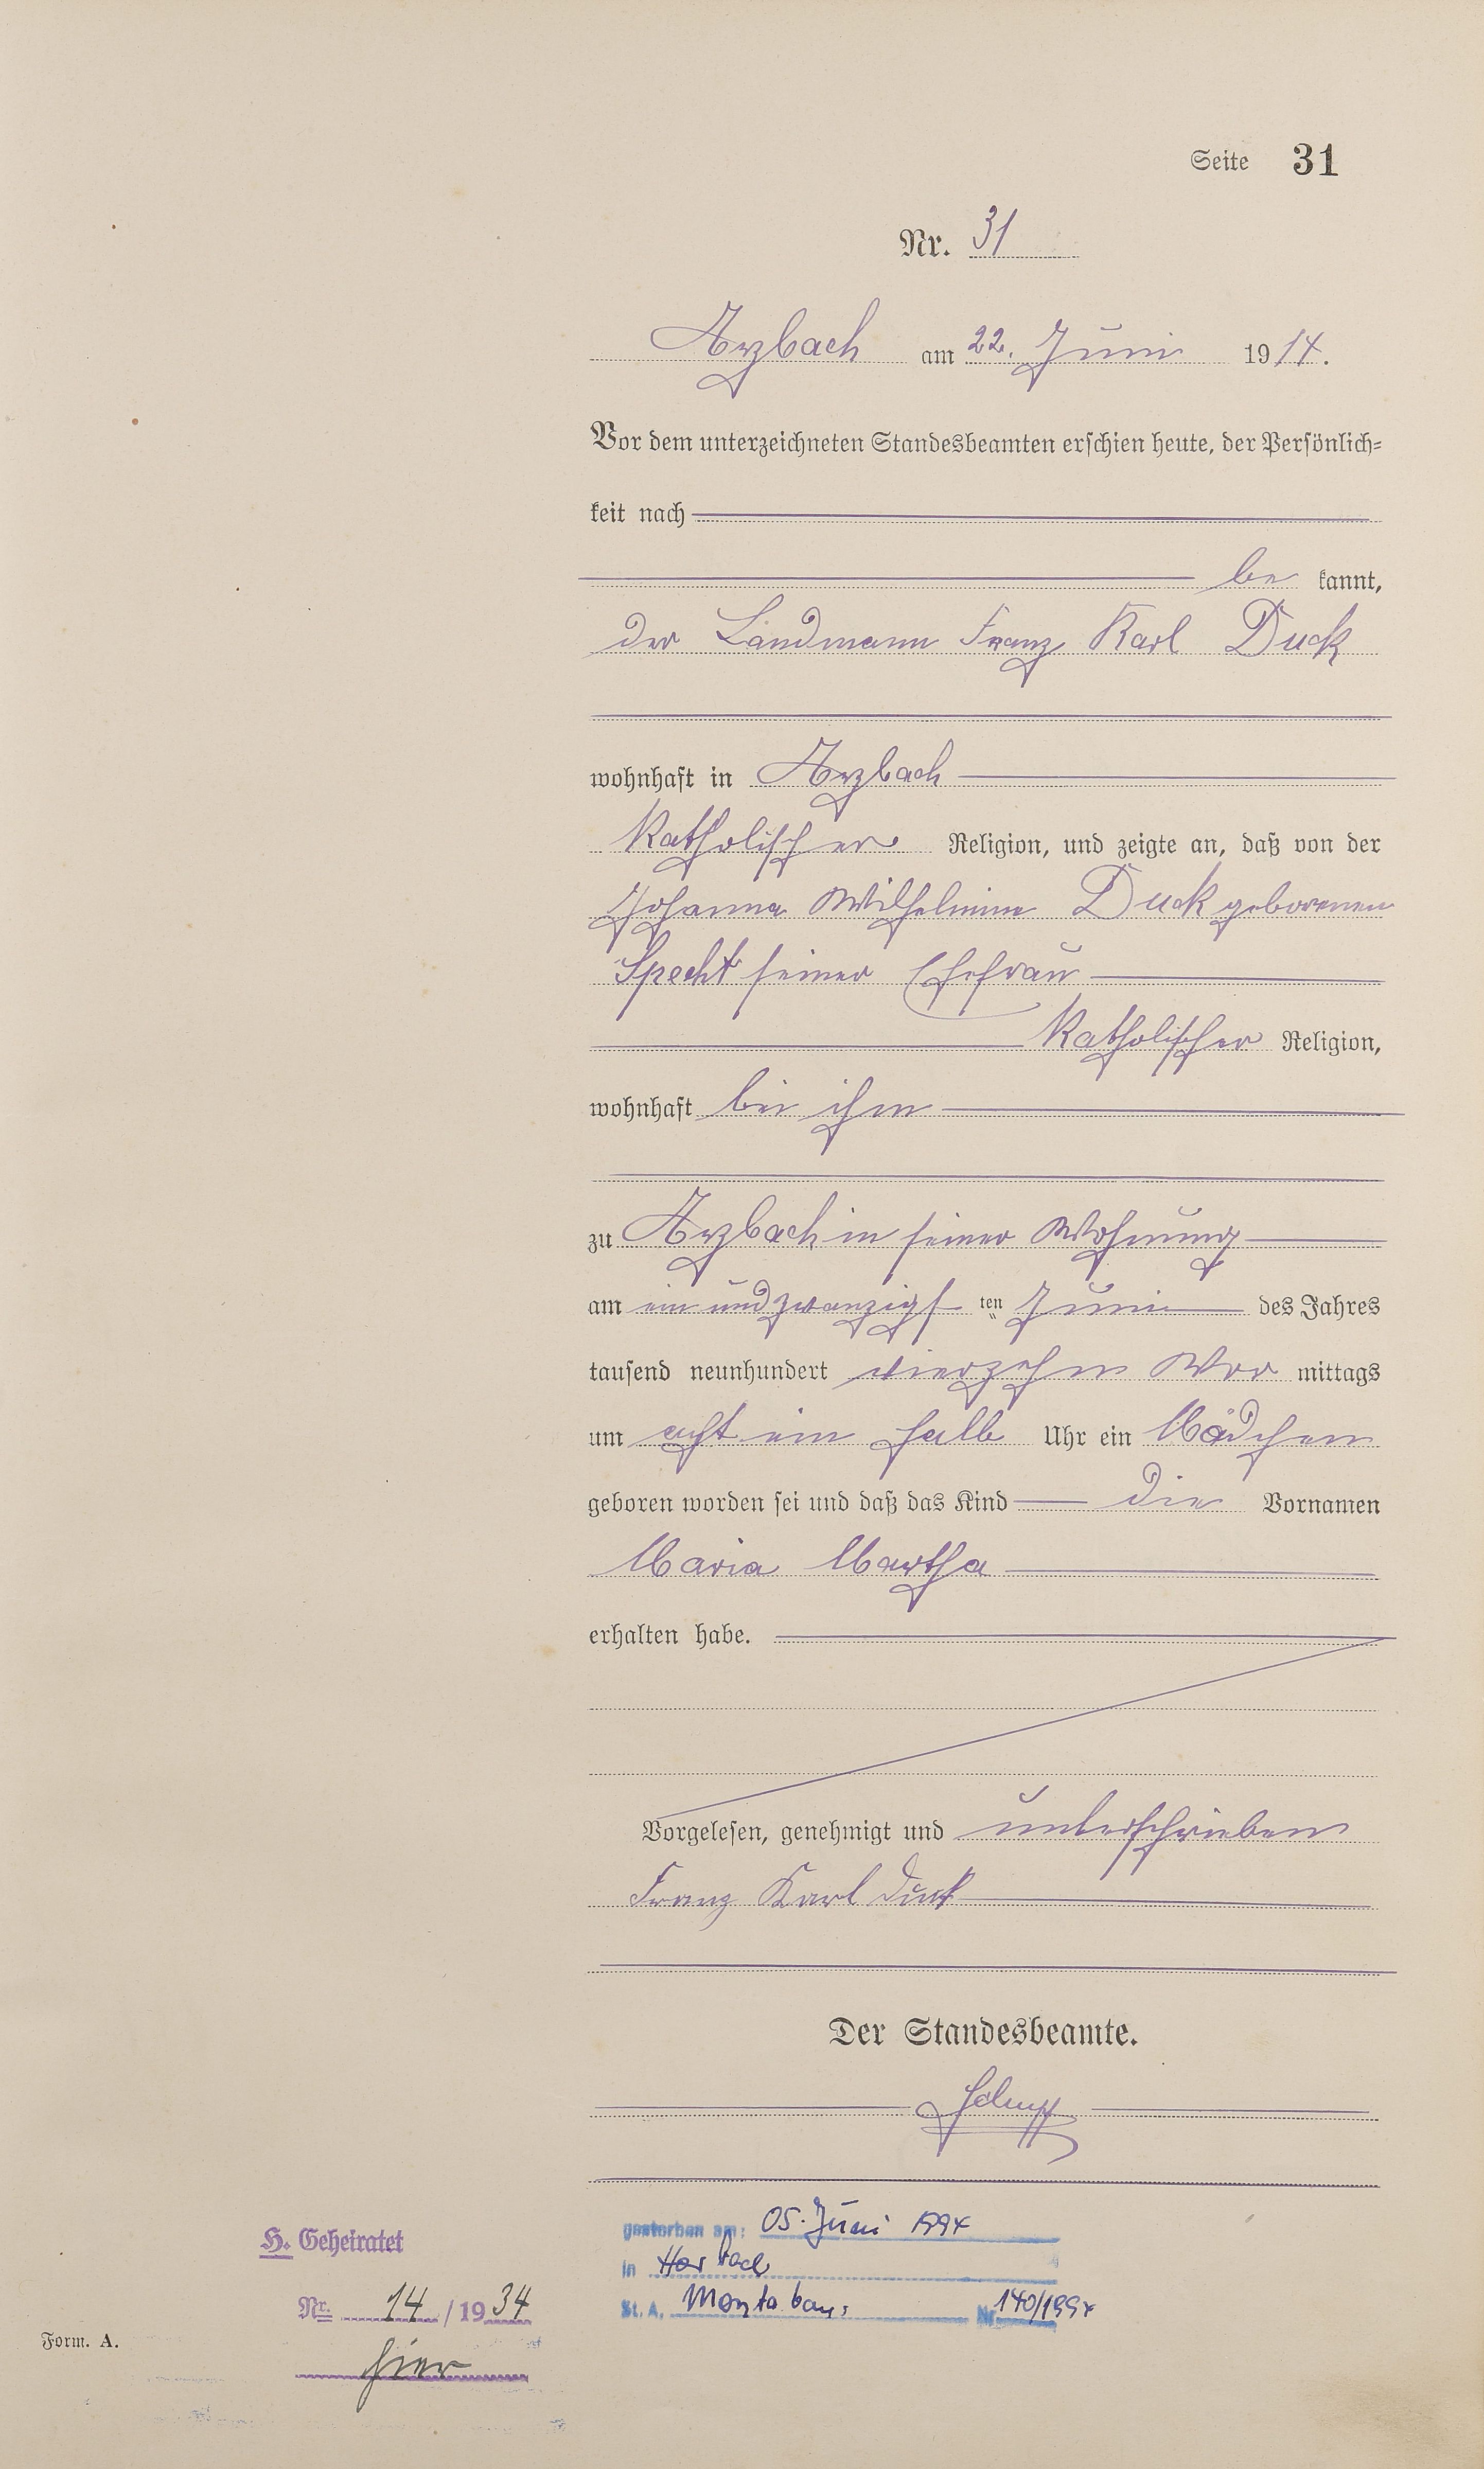 Seite 31
Nr. 31
Arzbach am 22. Juni 1914.
Vor dem unterzeichneten Standesbeamten erschien heute, der Persönlich-
keit nach
be kannt,
der Landmann Franz Karl Duck
wohnhaft in Arzbach
Katholischer Religion, und zeigte an, daß von der
Johanna Wilhelmine Duck geborenen
Specht seiner Ehefrau
Katholischer Religion,
wohnhaft bei ihm
zu Arzbach in seiner Wohnung
am ein und zwanzigs ten Juni des Jahres
tausend neunhundert vierzehn Vor mittags
um acht ein halb Uhr ein Mädchen
geboren worden sei und daß das Kind die Vornamen
Maria Martha
erhalten habe.
Vorgelesen, genehmigt und unterschrieben
Franz Karl Duck
Der Standesbeamte.
gestorben am: 05. Juni 1994
in Horbach
St. A. Montabaur Nr. 140/1994
H. Geheiratet
Nr. 14 / 19 34
hier
Form. A.